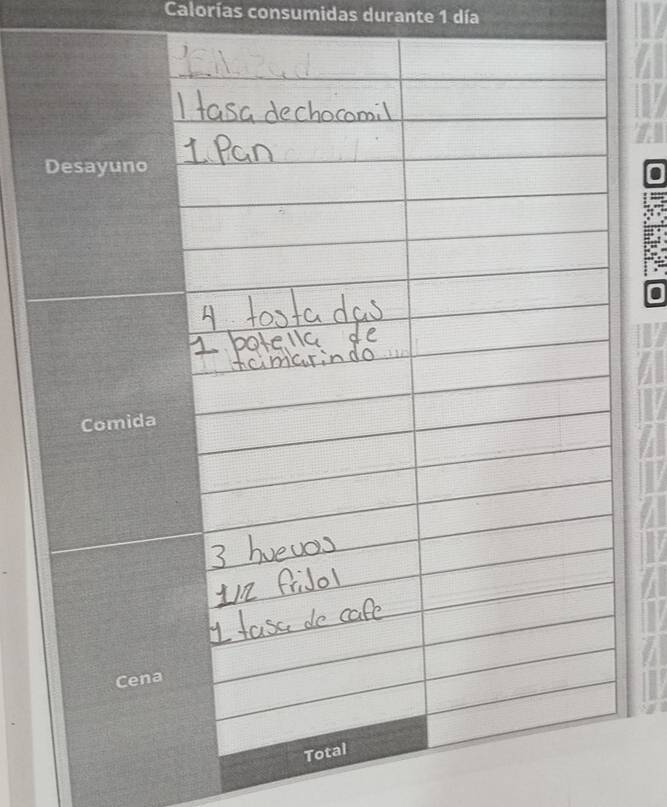 Calorías consumidas durante 1 día
1 tasa de chocomil
Desayuno
1 Pan
4 tostadas
1 botella de
tamarindo
Comida
3 huevos
1/2 frijol
1 tasa de cafe
Cena
Total